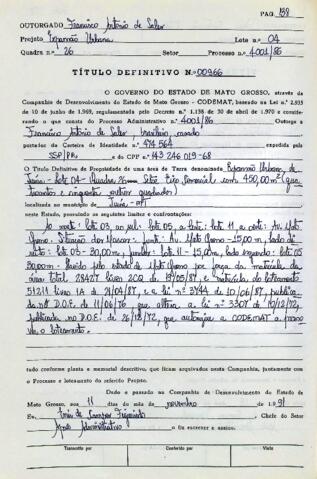 PAG. 158
OUTORGADO Francisco Antonio de Sales
Projeto Expansão Urbana Lote n.º 04
Quadra n.º 26 Setor Processo n.º 4001/86
TÍTULO DEFINITIVO N.º 00966
O GOVERNO DO ESTADO DE MATO GROSSO, através da
Companhia de Desenvolvimento do Estado de Mato Grosso - CODEMAT, baseado na Lei n.º 2.935
de 10 de junho de 1.969, regulamentada pelo Decreto n.º 1.138 de 30 de abril de 1.970 e considerando
o que consta do Processo Administrativo n.º 4001/86 Outorga a
Francisco Antonio de Sales, brasileiro, casado
portador da Carteira de Identidade n.º 474.564 expedida pela
SSP/PR e do CPF n.º 143 246 019-68
O Título Definitivo de Propriedade de uma área de Terra denominada Expansão Urbana de
Juína - Lote 04 - Quadra 26 com 450,00m² (quatrocentos
e cinquenta metros quadrados)
localizada no município de Juína - MT
neste Estado, possuindo os seguintes limites e confrontações:
Ao norte: lote 03, ao sul: lote 05, a leste: lote 11, a oeste: Av. Mato
Grosso. frente: Av. Mato Grosso - 15,00 m, lado direito:
lote 03 - 30,00m, fundos: lote 11 - 15,00m, lado esquerdo: lote 05
30,00m - pelo estado de Mato Grosso por força da matrícula da
área total 28427 livro 2CQ de 19/05/87, e matrícula do loteamento
51211 livro 1A de 21/04/87, e a lei nº 3744 de 10/06/87, publicada
no D.O.E. de 11/06/76 que altera a lei nº 3307 de 18/12/72,
publicada no D.O.E. de 26/12/72, que autoriza a CODEMAT a
o loteamento.
tudo conforme planta e memorial descritivo, que ficam arquivados nesta Companhia, juntamente com
o Processo e loteamento do referido Projeto.
Dado e passado na Companhia de Desenvolvimento do Estado de
Mato Grosso, aos 11 dias do mês de novembro de 1.991
Eu, de Campos Figueiredo, Chefe do Setor
Apoio Administrativo o fiz escrever e assino.
Transcrito por Conferido por Visto